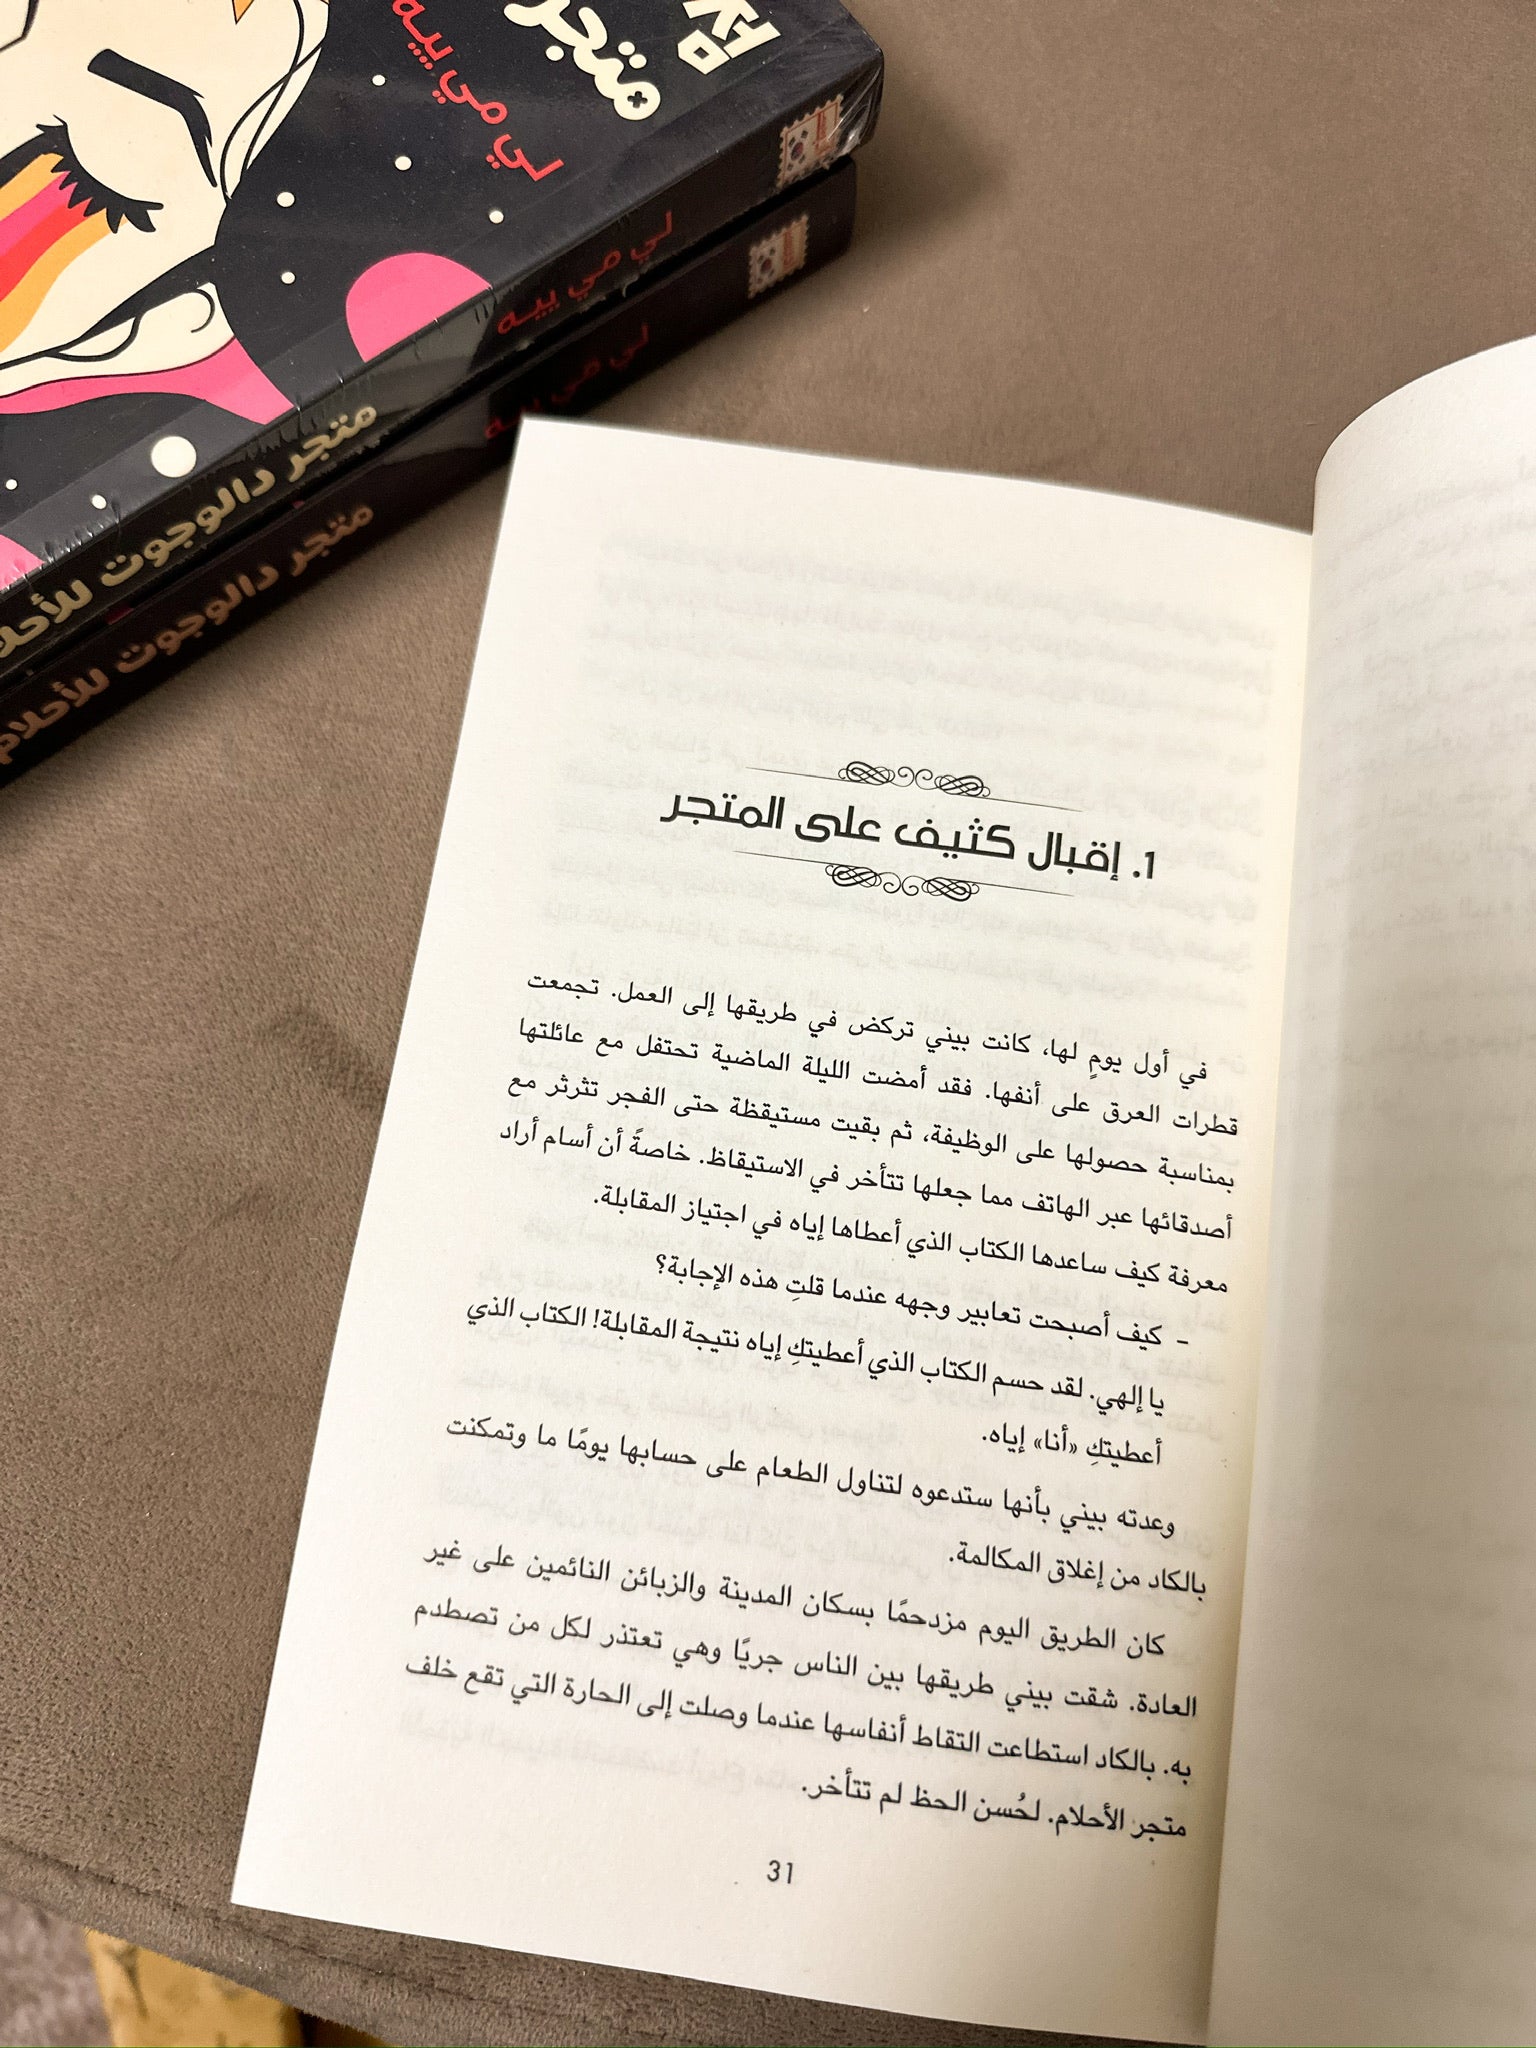 متجر
لي مي ييه
لي مي ييه
متجر دالوجوت للأحلا
لي مي ييه
متجر دالوجوت للأحلام
1. إقبال كثيف على المتجر
في أول يومٍ لها، كانت بيني تركض في طريقها إلى العمل. تجمعت
قطرات العرق على أنفها. فقد أمضت الليلة الماضية تحتفل مع عائلتها
بمناسبة حصولها على الوظيفة، ثم بقيت مستيقظة حتى الفجر تثرثر مع
أصدقائها عبر الهاتف مما جعلها تتأخر في الاستيقاظ. خاصةً أن أسام أراد
معرفة كيف ساعدها الكتاب الذي أعطاها إياه في اجتياز المقابلة.
- كيف أصبحت تعابير وجهه عندما قلتِ هذه الإجابة؟
يا إلهي. لقد حسم الكتاب الذي أعطيتكِ إياه نتيجة المقابلة! الكتاب الذي
أعطيتكِ «أنا» إياه.
وعدته بيني بأنها ستدعوه لتناول الطعام على حسابها يومًا ما وتمكنت
بالكاد من إغلاق المكالمة.
كان الطريق اليوم مزدحمًا بسكان المدينة والزبائن النائمين على غير
العادة. شقت بيني طريقها بين الناس جريًا وهي تعتذر لكل من تصطدم
به. بالكاد استطاعت التقاط أنفاسها عندما وصلت إلى الحارة التي تقع خلف
متجر الأحلام. لحُسن الحظ لم تتأخر.
31